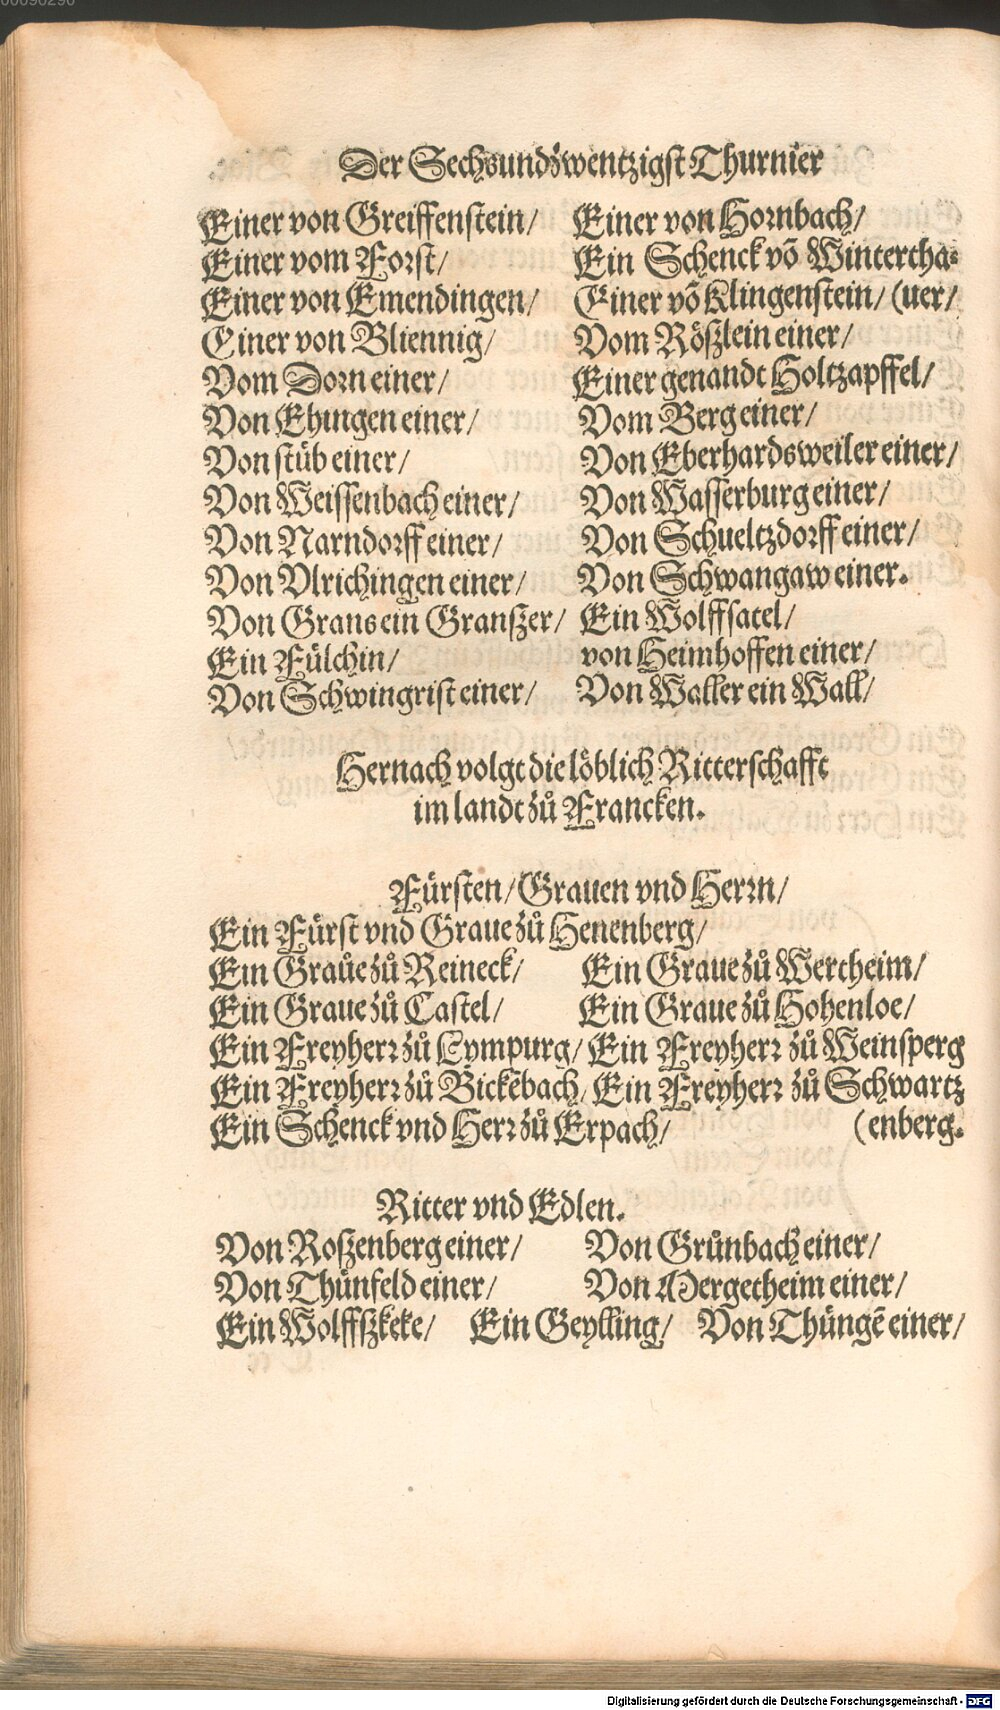 Der Sechsundzwentzigst Thurnier
Einer von Greiffenstein/
Einer vom Forst/
Einer von Emendingen/
Einer von Bliennig/
Vom Dorn einer/
Von Ehingen einer/
Von stüb einer/
Von Weissenbach einer/
Von Narndorff einer/
Von Vlrichingen einer/
Von Grans ein Granßer/
Ein Fülchin/
Von Schwingrist einer/
Einer von Hornbach/
Ein Schenck võ Wintertha-
Einer võ Klingenstein/ (uer/
Vom Rößlein einer/
Einer genandt Holtzapffel/
Vom Berg einer/
Von Eberhardsweiler einer/
Von Wasserburg einer/
Von Schueltzdorff einer/
Von Schwangaw einer.
Ein Wolffsatel/
von Heimhoffen einer/
Von Waller ein Wall/
Hernach volgt die löblich Ritterschafft
im landt zů Francken.
Fürsten/ Grauen vnd Herrn/
Ein Fürst vnd Graue zů Henenberg/
Ein Graůe zů Reineck/ Ein Graue zů Wertheim/
Ein Graue zů Castel/ Ein Graue zů Hohenloe/
Ein Freyherr zů Lympurg/ Ein Freyherr zů Weinsperg
Ein Freyherr zů Bickēbach/ Ein Freyherr zů Schwartz
Ein Schenck vnd Herr zů Erpach/ (enberg.
Ritter vnd Edlen.
Von Roßenberg einer/ Von Grünbach einer/
Von Thünfeld einer/ Von Mergetheim einer/
Ein Wolffßkeke/ Ein Geylling/ Von Thüngē einer/
Digitalisierung gefördert durch die Deutsche Forschungsgemeinschaft - DFG